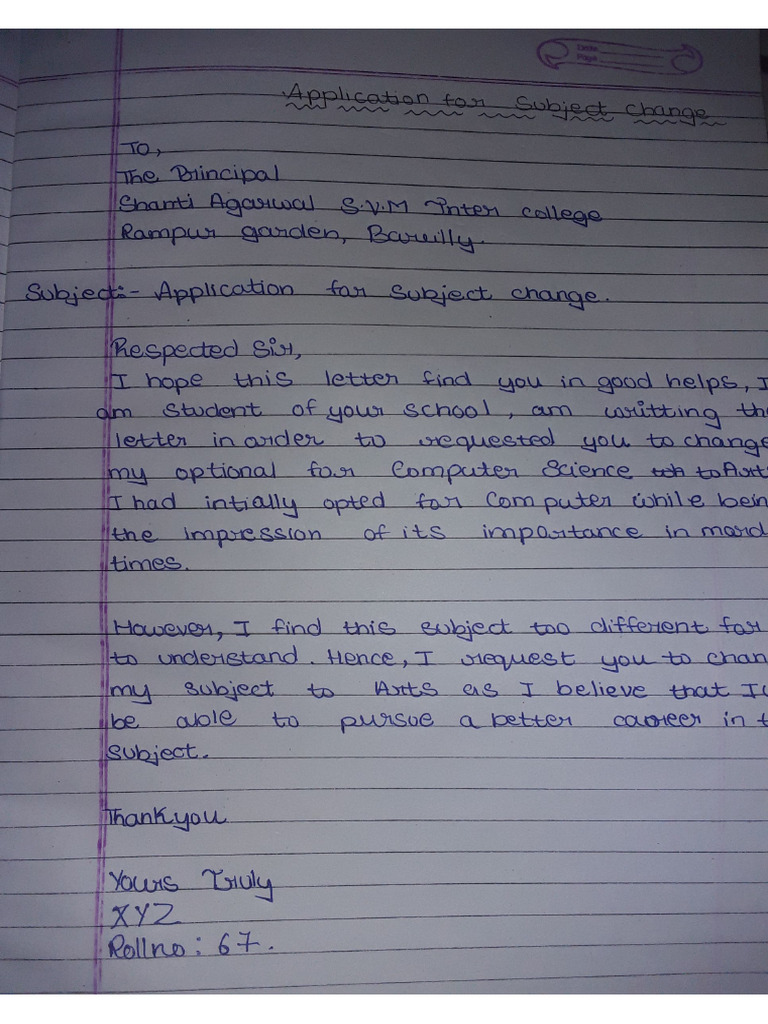 Date
Page
Application for Subject Change
To,
The Principal
Shanti Agarwal S.V.M Inter college
Rampur garden, Bareilly.
Subject:- Application for Subject change.
Respected Sir,
I hope this letter find you in good helps, I
am student of your school, am writting th
letter in order to requested you to change
my optional for Computer Science to Art
I had intially opted for Computer while bein
the impression of its importance in mord
times.
However, I find this subject too different for
to understand. Hence, I request you to chan
my subject to Arts as I believe that I
be able to pursue a better career in t
subject.
Thankyou
Yours Truly
XYZ
Rollno: 67.